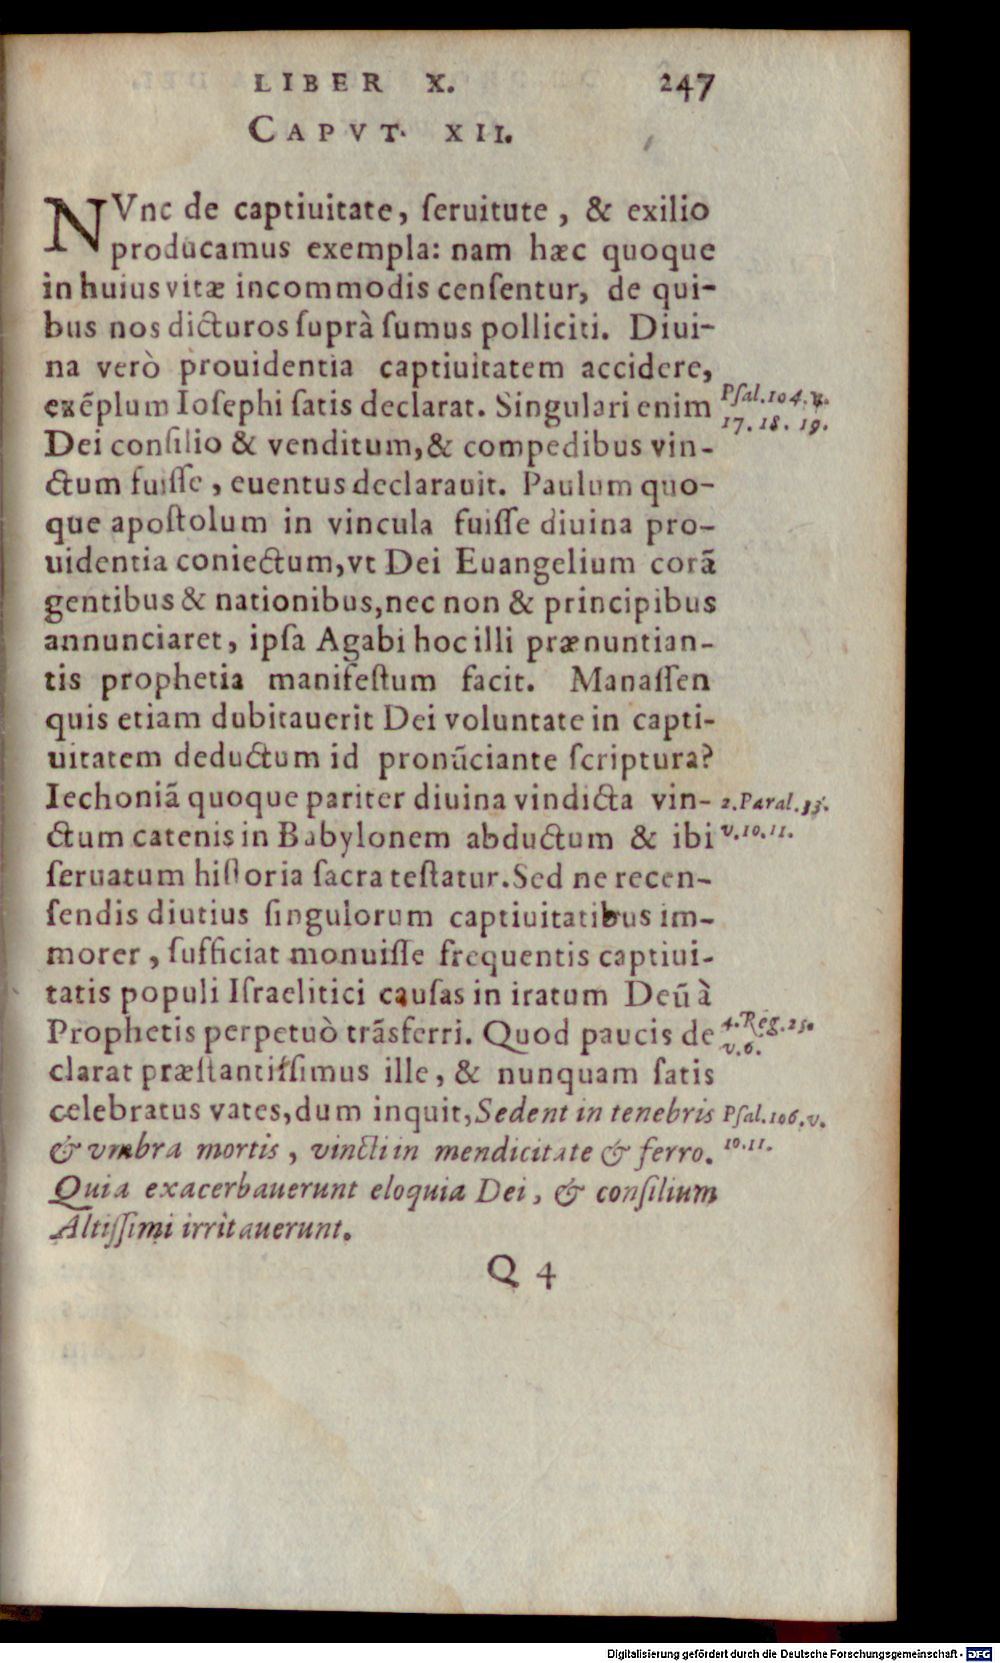 LIBER X. 247
CAPVT. XII.
NVnc de captiuitate, ſeruitute, & exilio
producamus exempla: nam hæc quoque
in huius vitæ incommodis cenſentur, de qui-
bus nos dicturos ſuprà ſumus polliciti. Diui-
na verò prouidentia captiuitatem accidere,
exẽplum Ioſephi ſatis declarat. Singulari enim
Pſal. 104. v.
17. 18. 19.
Dei conſilio & venditum, & compedibus vin-
ctum fuiſſe, euentus declarauit. Paulum quo-
que apoſtolum in vincula fuiſſe diuina pro-
uidentia coniectum, vt Dei Euangelium corã
gentibus & nationibus, nec non & principibus
annunciaret, ipſa Agabi hoc illi prænuntian-
tis prophetia manifeſtum facit. Manaſſen
quis etiam dubitauerit Dei voluntate in capti-
uitatem deductum id pronũciante ſcriptura?
Iechoniã quoque pariter diuina vindicta vin-
2. Paral. 33.
v. 10. 11.
ctum catenis in Babylonem abductum & ibi
ſeruatum hiſtoria ſacra teſtatur. Sed ne recen-
ſendis diutius ſingulorum captiuitatibus im-
morer, ſufficiat monuiſſe frequentis captiui-
tatis populi Iſraelitici cauſas in iratum Deũ à
Prophetis perpetuò trãsferri. Quod paucis de
4. Reg. 25.
v. 6.
clarat præſtantiſſimus ille, & nunquam ſatis
celebratus vates, dum inquit, Sedent in tenebris
Pſal. 106. v.
10. 11.
& vmbra mortis, vincti in mendicitate & ferro.
Quia exacerbauerunt eloquia Dei, & conſilium
Altiſſimi irritauerunt.
Q 4
Digitalisierung gefördert durch die Deutsche Forschungsgemeinschaft - DFG